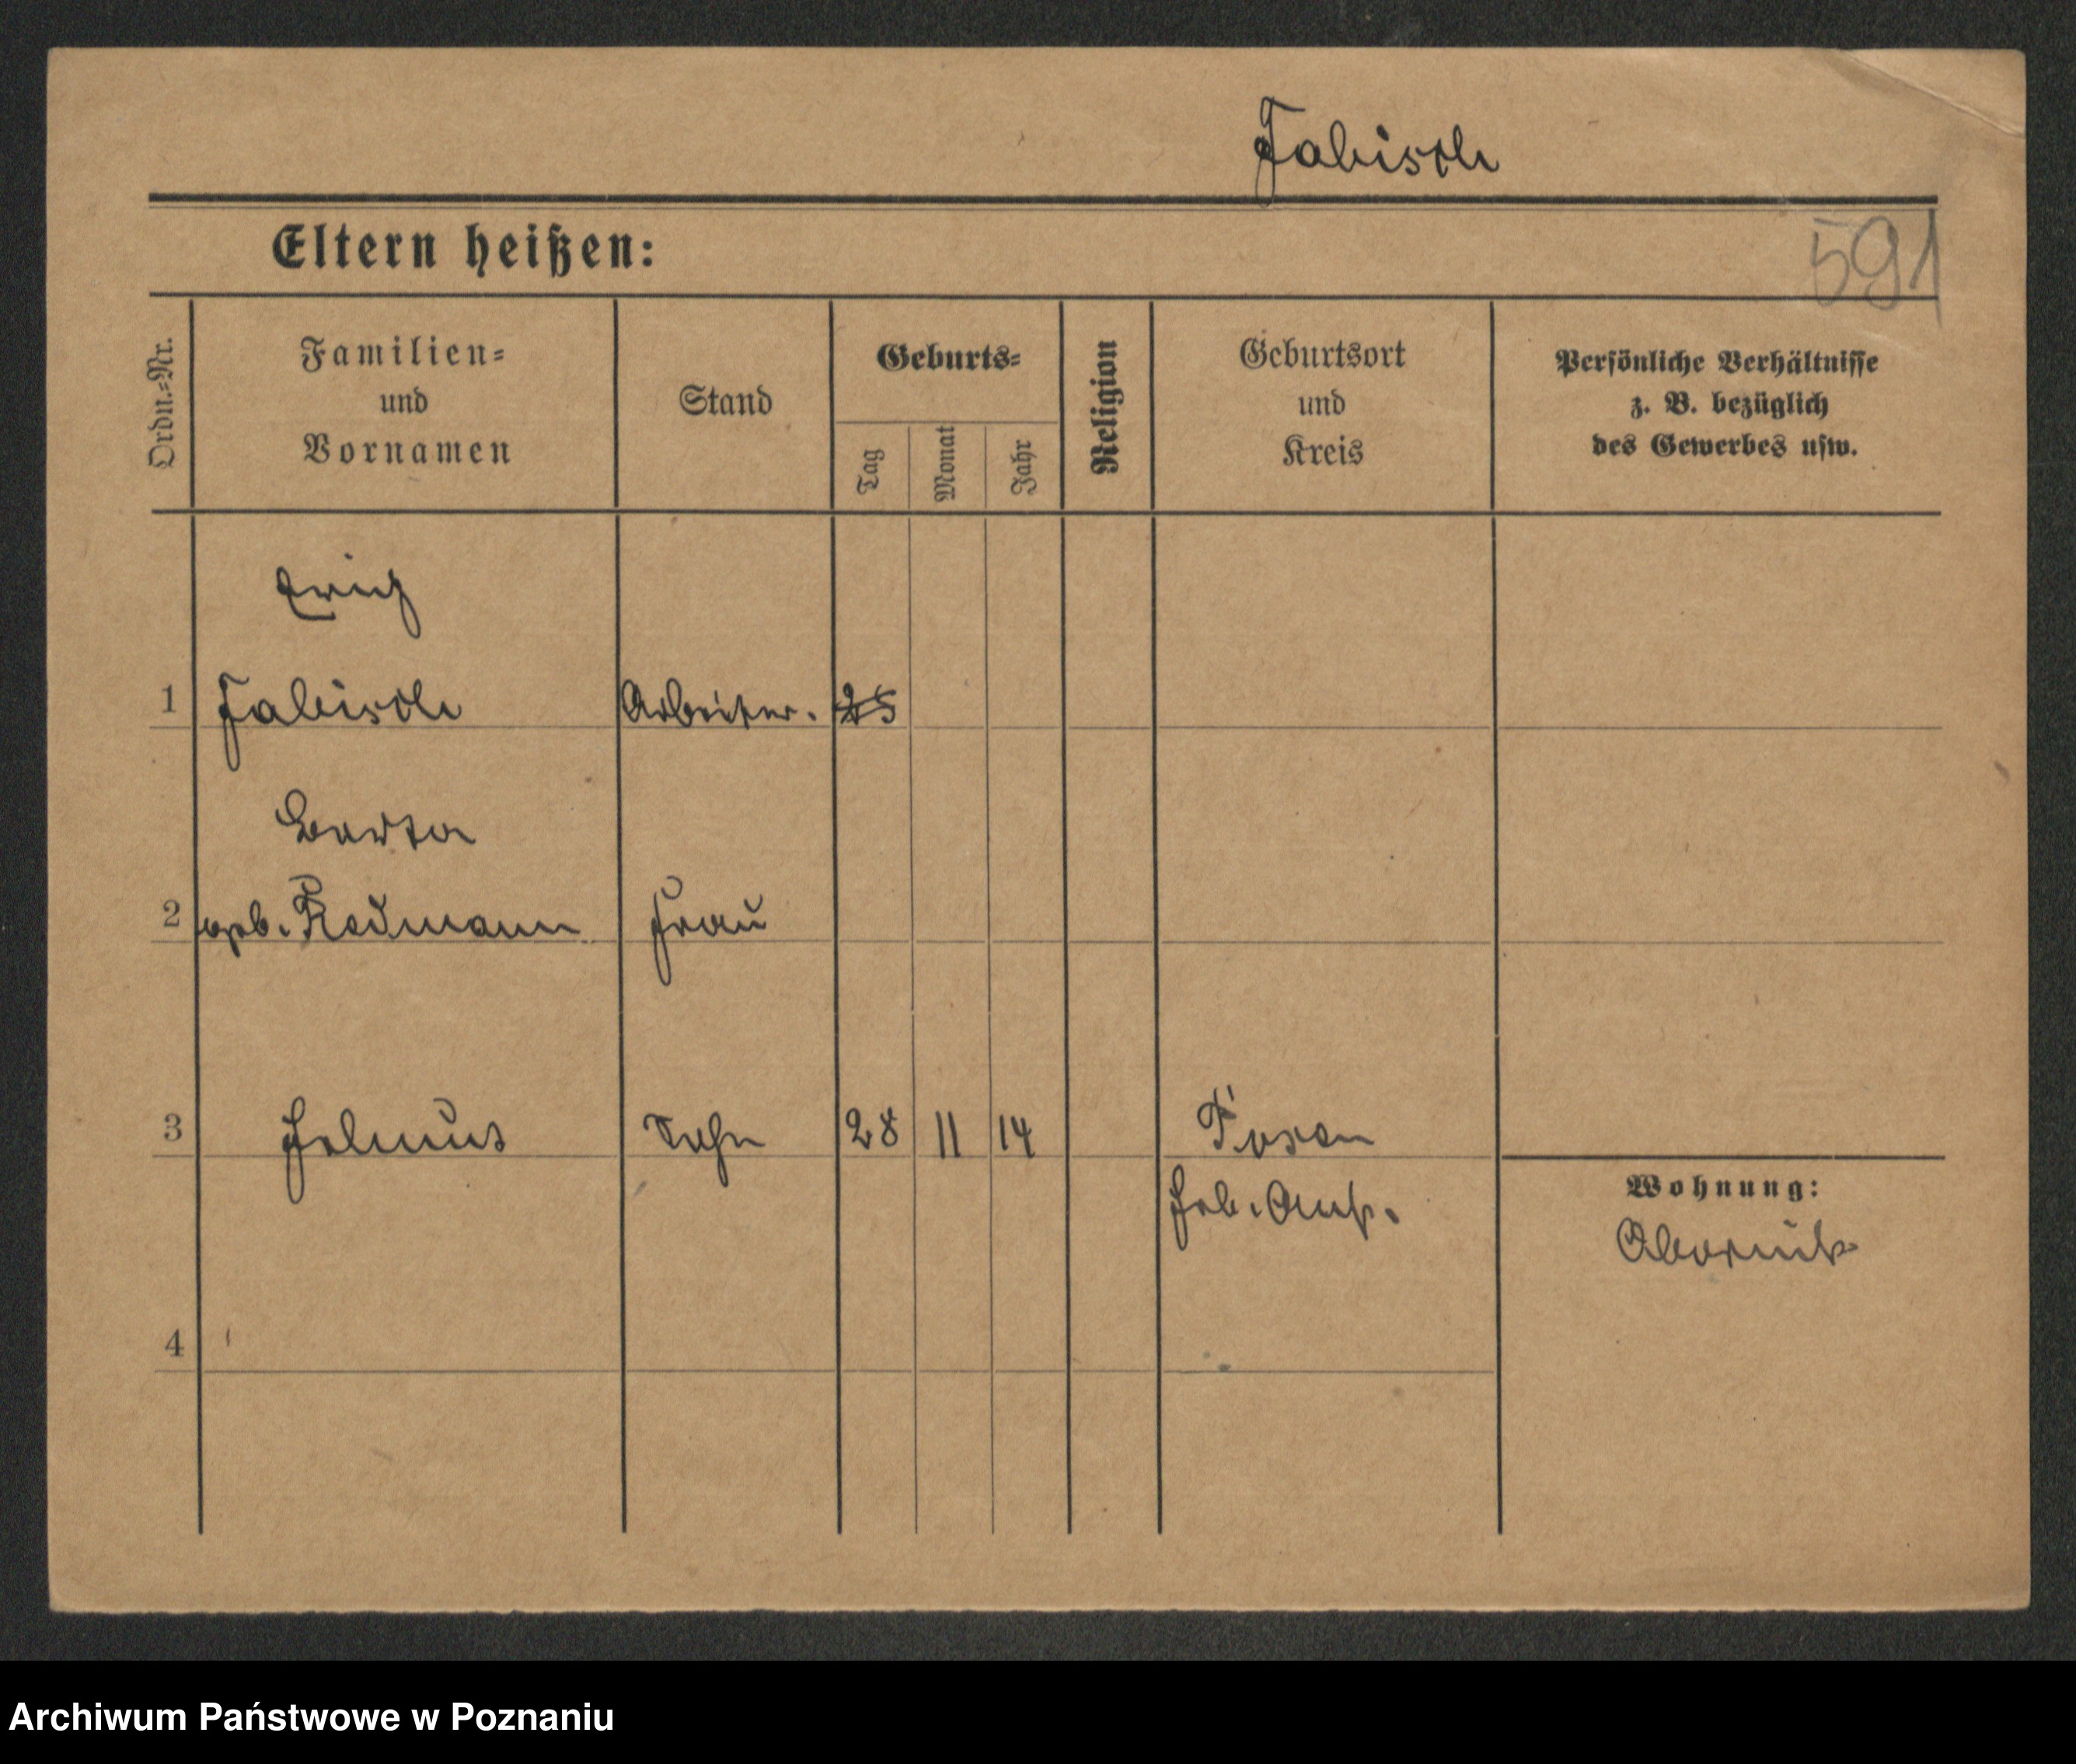 Fabisch
Eltern heißen:
591
Ordn.-Nr.
Familien-
und
Vornamen
Stand
Geburts-
Tag
Monat
Jahr
Religion
Geburtsort
und
Kreis
Persönliche Verhältnisse
z. B. bezüglich
des Gewerbes usw.
Erich
1 Fabisch Arbeiter. 25
Berta
2 geb. Redmann Frau
3 Helmut Sohn 28 11 14 Posen
Heb. Anst.
Wohnung:
Obornik
4
Archiwum Państwowe w Poznaniu